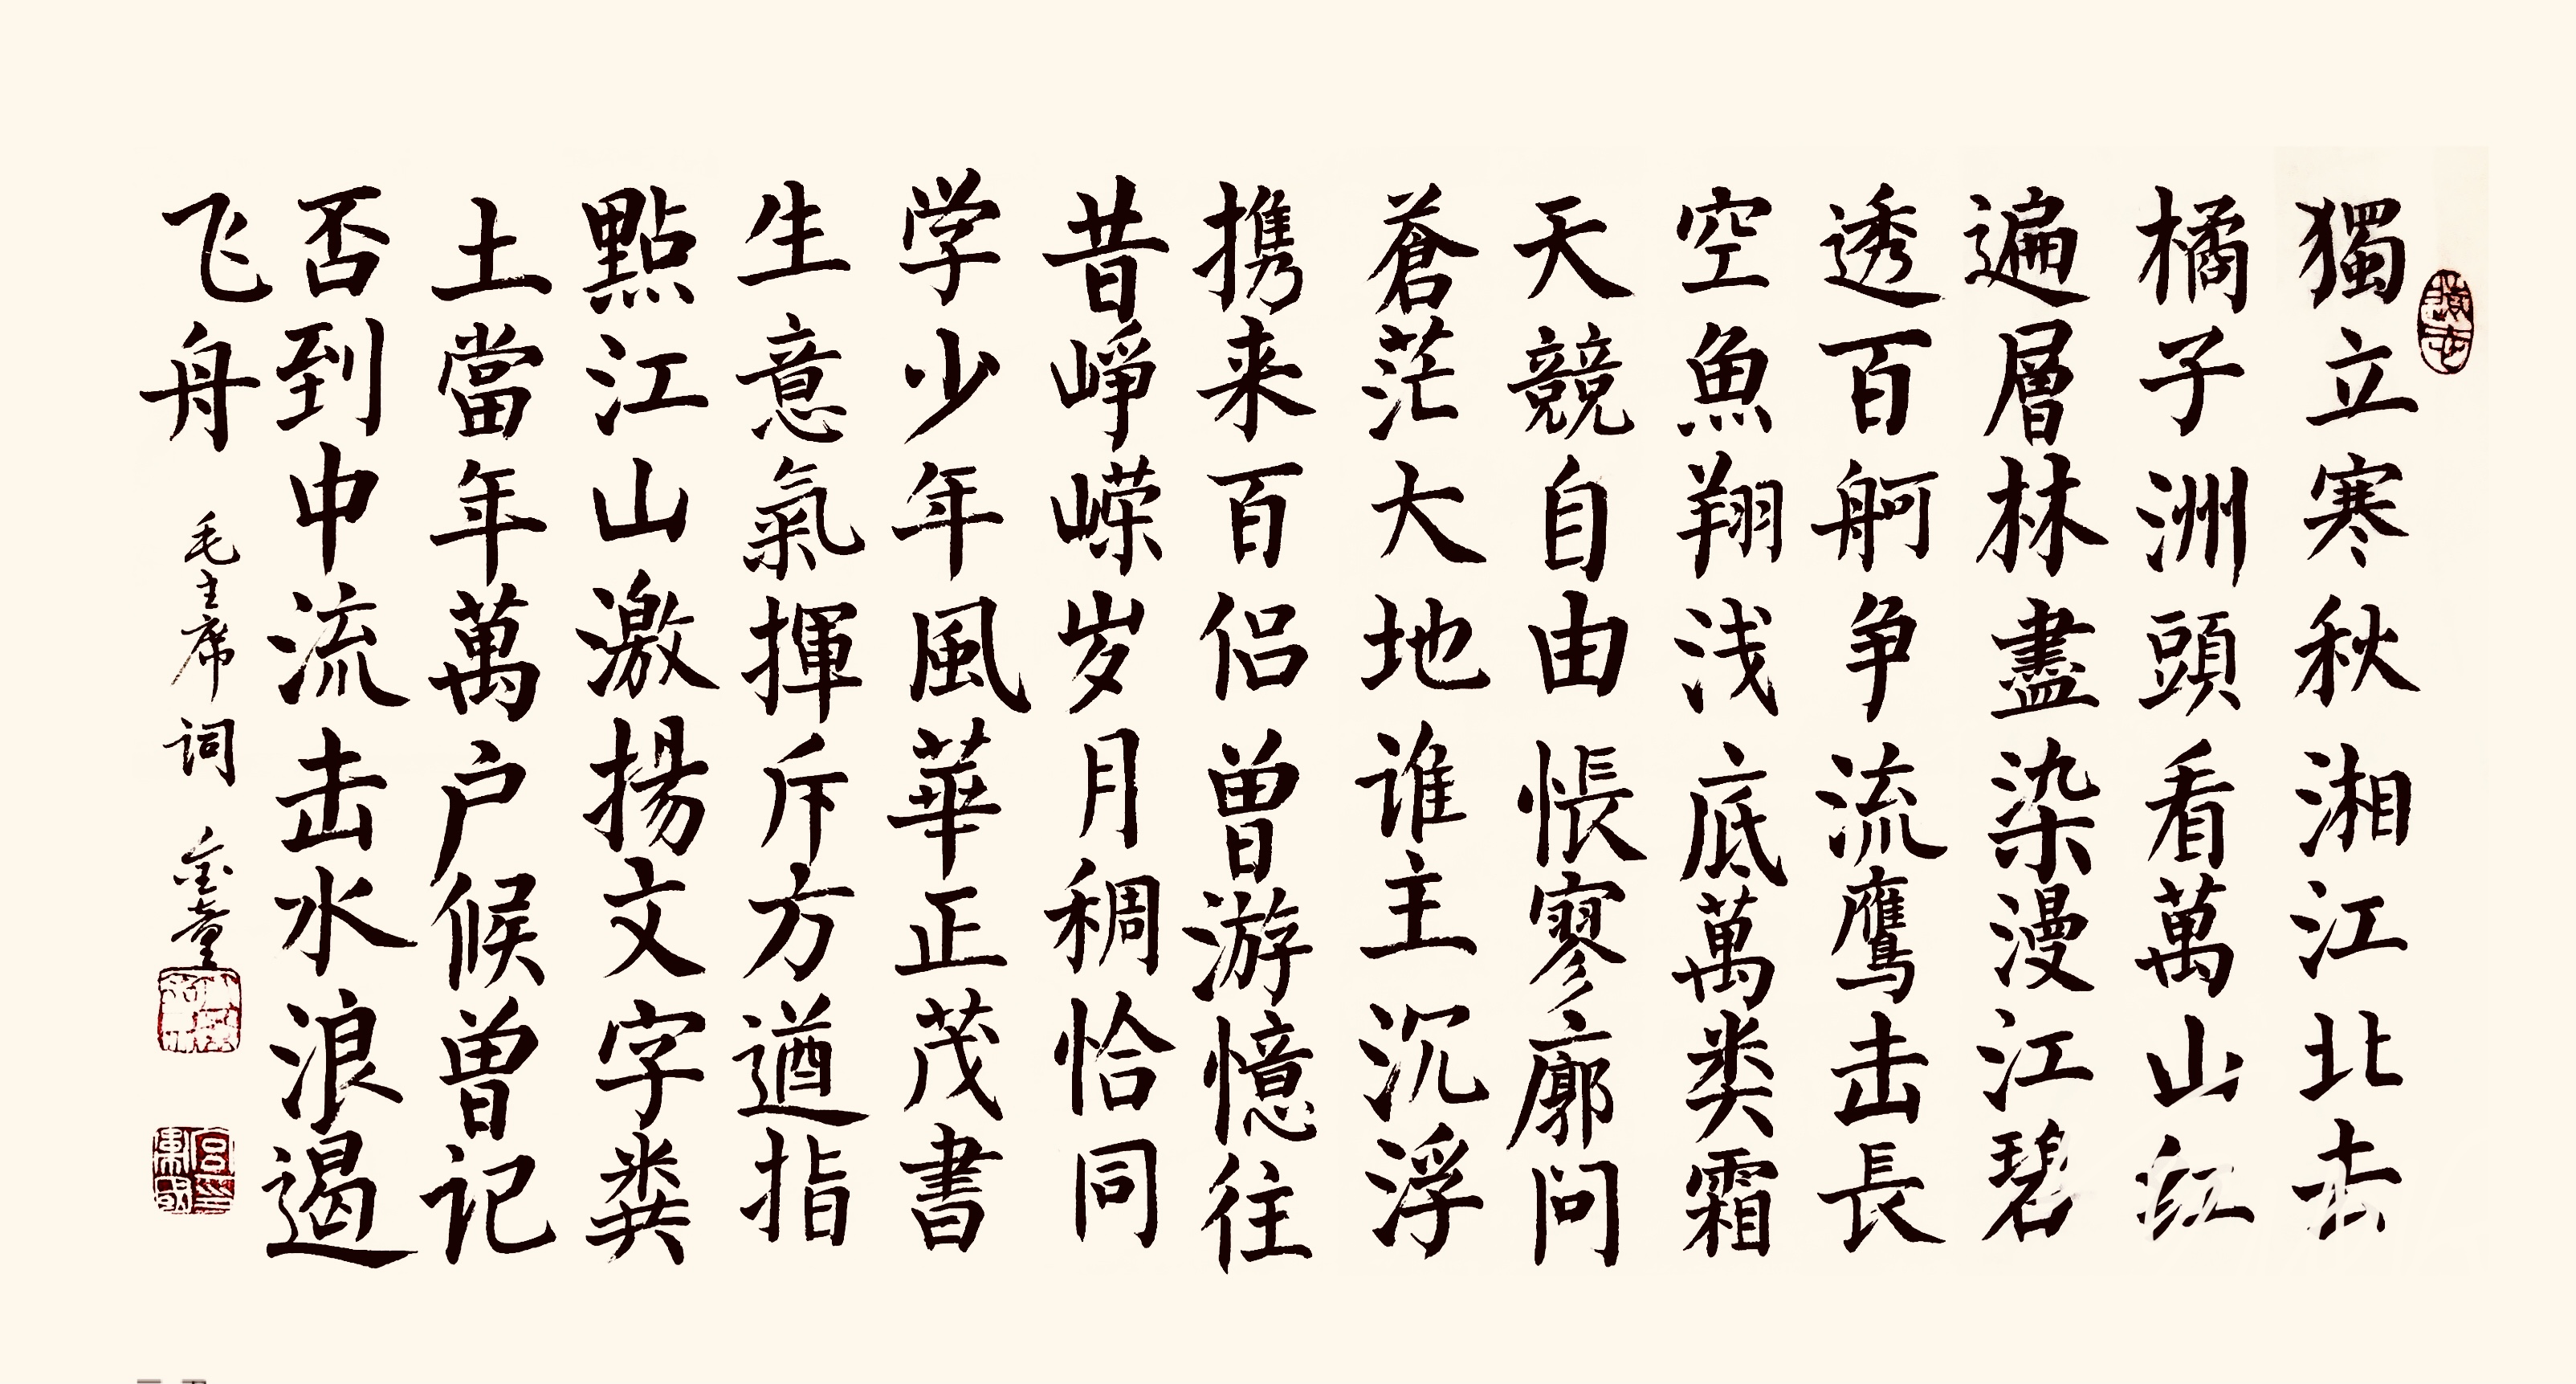 獨立寒秋湘江北去
橘子洲頭看萬山紅
遍層林盡染漫江碧
透百舸争流鹰击長
空魚翔浅底萬类霜
天競自由悵寥廓问
蒼茫大地谁主沉浮
携来百侣曾游憶往
昔峥嵘岁月稠恰同
学少年風華正茂書
生意氣揮斥方遒指
點江山激揚文字粪
土當年萬户候曾记
否到中流击水浪遏
飞舟
毛主席词